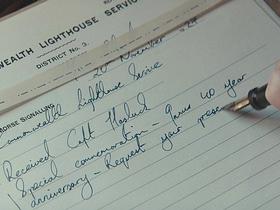 WEALTH LIGHTHOUSE SERVICE
DISTRICT No. 3.
20 November
MORSE SIGNALLING
Commonwealth Lighthouse Service
Received Capt Hasluck
Special commemoration - Janus 40 year
anniversary - Request your prese